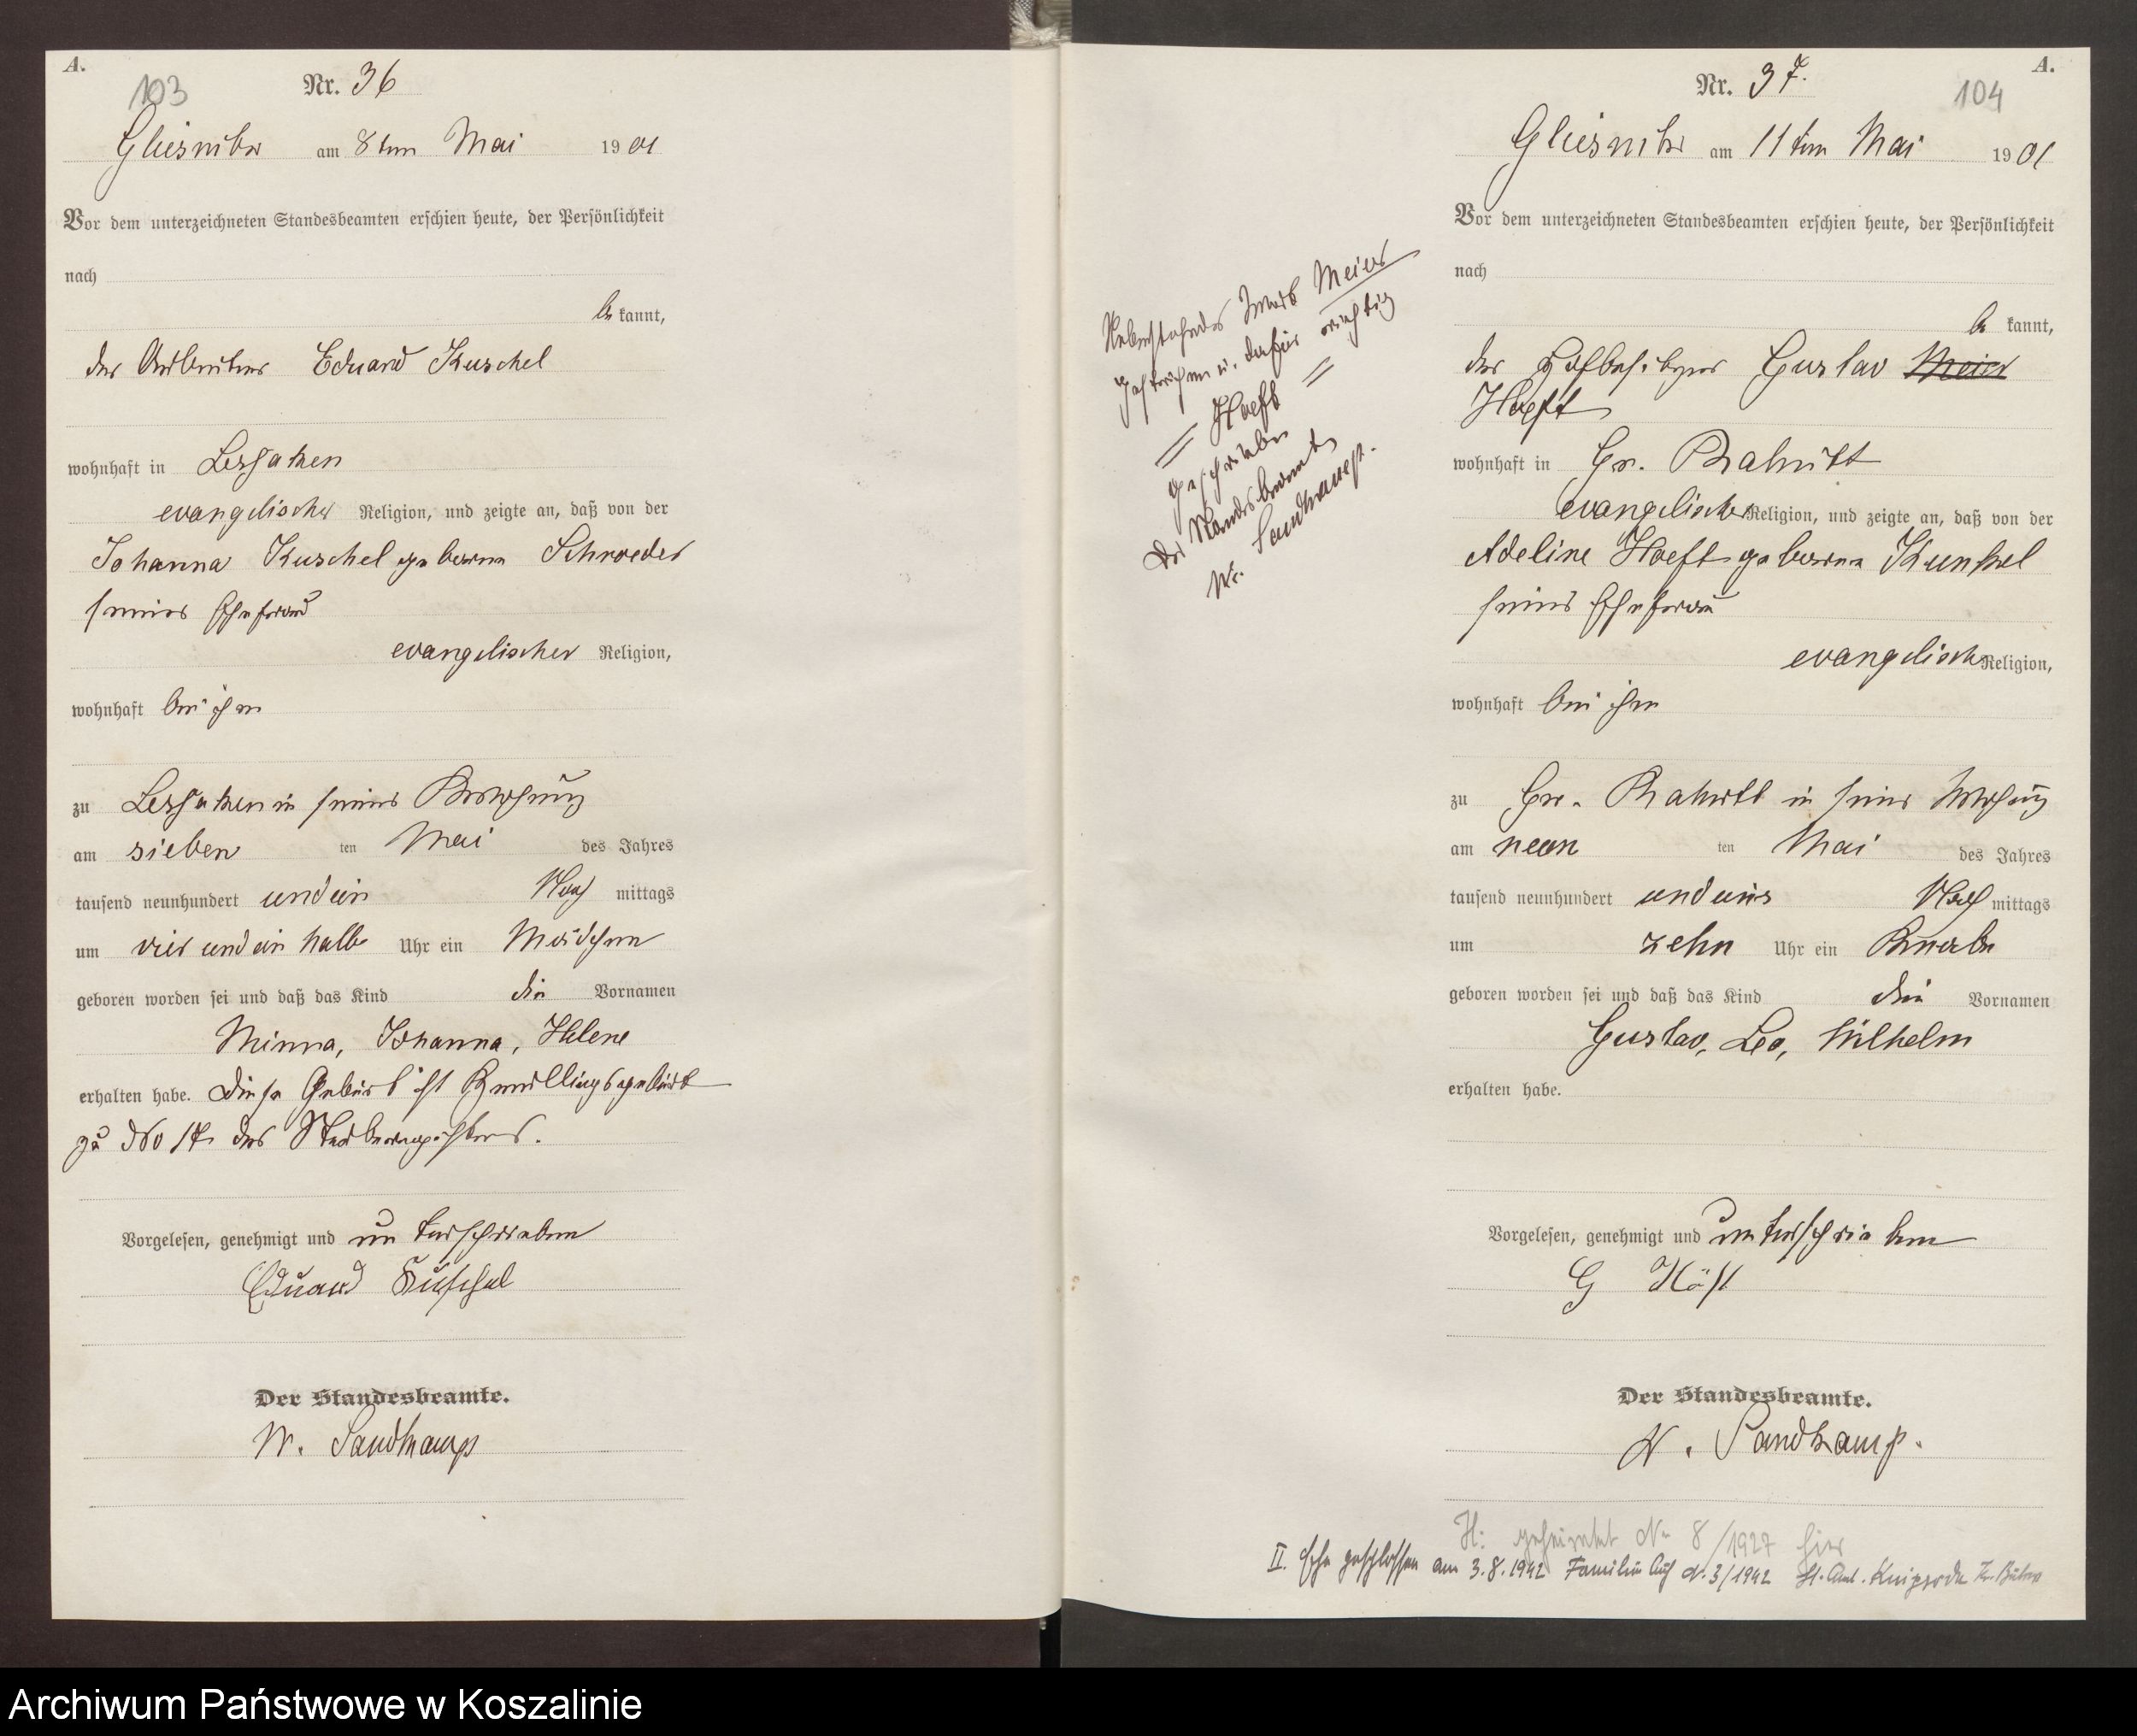 A.
103
Nr. 36
Gliesnitz am 8ten Mai 1901
Vor dem unterzeichneten Standesbeamten erschien heute, der Persönlichkeit
nach
be kannt,
der Arbeiter Eduard Kuschel
wohnhaft in Lessaken
evangelischer Religion, und zeigte an, daß von der
Johanna Kuschel geborene Schroeder
seiner Ehefrau
evangelischer Religion,
wohnhaft bei ihm
zu Lessaken in seiner Behausung
am sieben ten Mai des Jahres
tausend neunhundert und ein Nach mittags
um vier und ein halb Uhr ein Mädchen
geboren worden sei und daß das Kind die Vornamen
Minna, Johanna, Helene
erhalten habe. Diese Geburt ist Zwillingsgeburt
zu No 17 des Sterberegisters.
Vorgelesen, genehmigt und unterschrieben
Eduard Kuschel
Der Standesbeamte.
W. Sandkamp
A.
Nr. 37.
104
Gliesnitz am 11ten Mai 1901
Vor dem unterzeichneten Standesbeamten erschien heute, der Persönlichkeit
nach
be kannt,
der Hofbesitzer Gustav Meier
Hoeft
wohnhaft in Gr. Rakitt
evangelischer Religion, und zeigte an, daß von der
Adeline Hoeft geborene Kunkel
seiner Ehefrau
evangelisch Religion,
wohnhaft bei ihm
zu Gr. Rakitt in seiner Wohnung
am neun ten Mai des Jahres
tausend neunhundert und eins Nach mittags
um zehn Uhr ein Knabe
geboren worden sei und daß das Kind die Vornamen
Gustav, Leo, Wilhelm
erhalten habe.
Vorgelesen, genehmigt und unterschrieben
G Höft
Der Standesbeamte.
W. Sandkamp.
Nebenstehendes Meier
gestrichen u. dafür richtig
= Hoeft =
geschrieben
Der Standesbeamte
W. Sandkamp.
H: geheiratet Nr 8/1927 hier
II. Ehe geschlossen am 3.8.1942 Familien Buch Nr. 3/1942 St. Amt. Kniprode Kr. Bütow
Archiwum Państwowe w Koszalinie